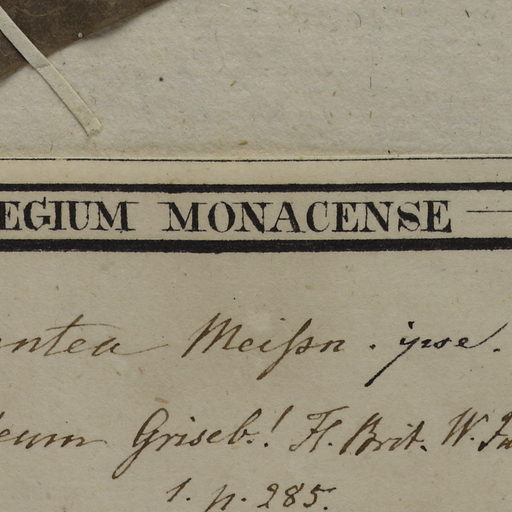 EGIUM MONACENSE
entea Meiſsn. ipse.
eum Griseb.! Fl. Brit. W. In
1. p. 285.